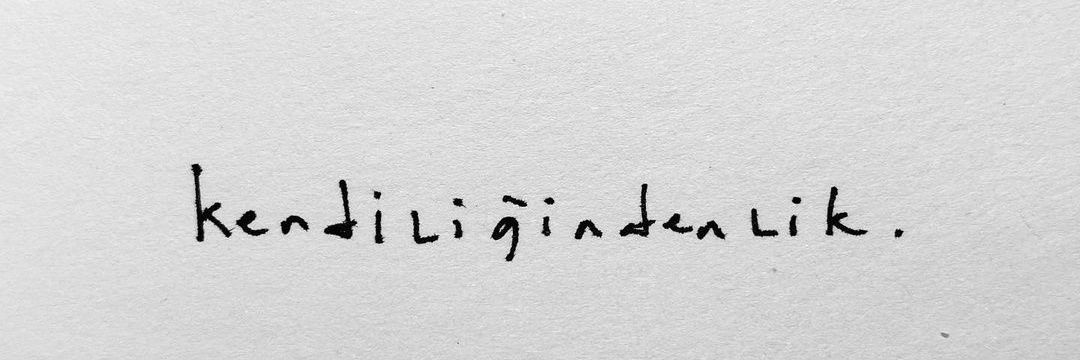 kendiliğindenlik.